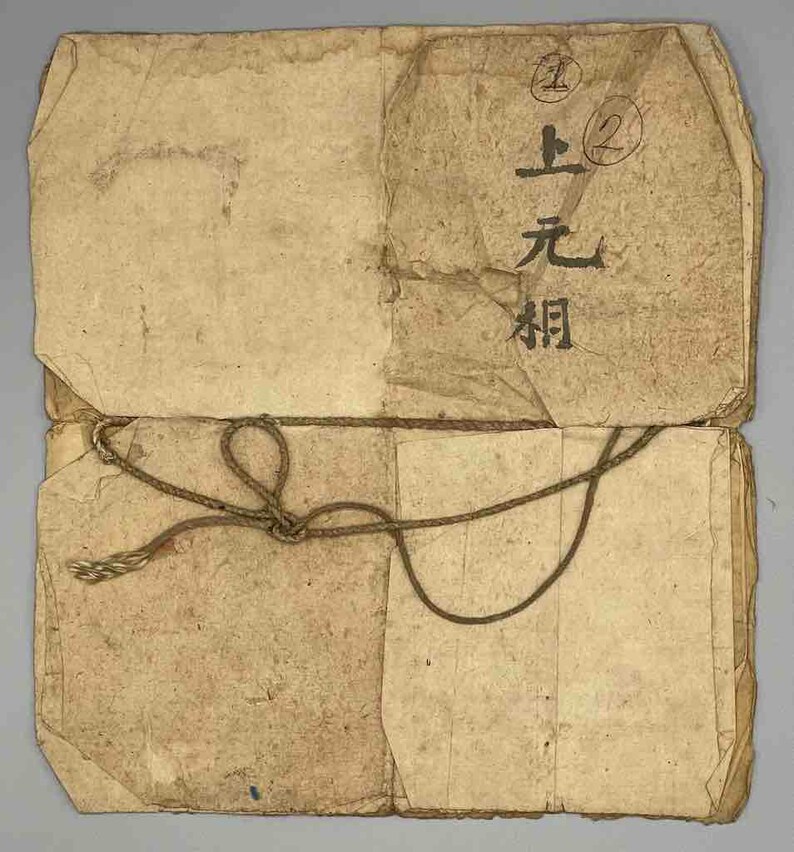 ①
②
上元相